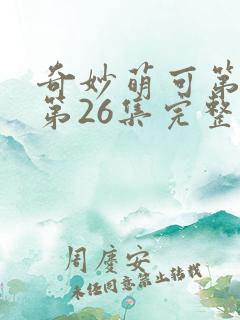 奇妙萌可第
第26集完整
周庆安
未经同意禁止转载